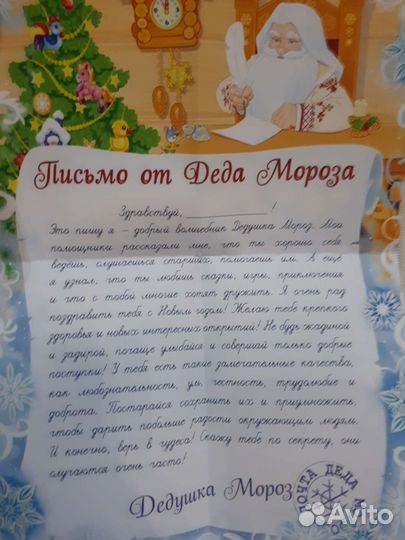 Письмо от Деда Мороза
Здравствуй, ____________!
Это пишу я - добрый волшебник Дедушка Мороз. Мои
помощники рассказали мне, что ты хорошо себя
ведёшь, слушаешься старших, помогаешь им. А ещё
я узнал, что ты любишь сказки, игры, приключения
и что с тобой многие хотят дружить. Я очень рад
поздравить тебя с Новым годом! Желаю тебе крепкого
здоровья и новых интересных открытий! Не будь жадиной
и задирой, почаще улыбайся и совершай только добрые
поступки! У тебя есть такие замечательные качества,
как любознательность, ум, честность, трудолюбие и
доброта. Постарайся сохранить их и приумножить,
чтобы дарить побольше радости окружающим людям.
И конечно, верь в чудеса! Скажу тебе по секрету, они
случаются очень часто!
Дедушка Мороз
ПОЧТА ДЕДА
Avito